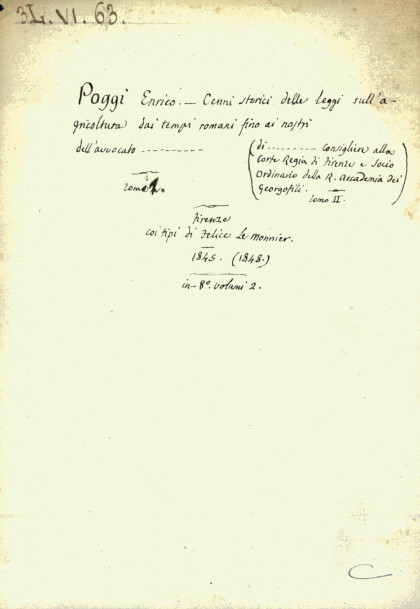 3L.VI.63.
Poggi Enrico. — Cenni storici delle leggi sull'a-
gricoltura dai tempi romani fino ai nostri
dell'avvocato ----------
(di --------- consigliere alla
Corte Regia di Firenze e Socio
Ordinario della R. Accademia dei
Georgofili.
Tomo II.)
Tomo 1.
Firenze
coi tipi di Felice Le Monnier.
1845. (1848.)
in-8º. volumi 2.
C